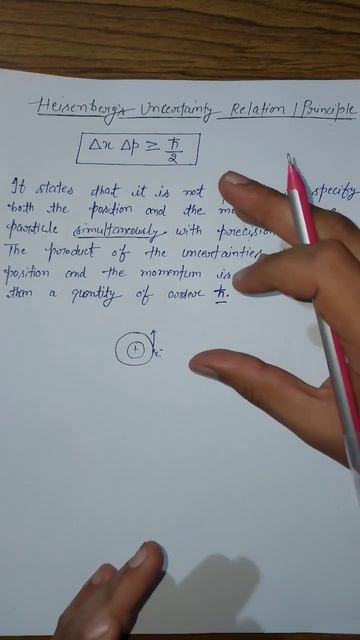 Heisenberg's Uncertainty Relation / Principle
Δx Δp ≥ ħ/2
It states that it is not specify
both the position and the
particle simultaneously with
The product of the uncertainties
position and the momentum is
than a quantity of order ħ.
+ e⁻